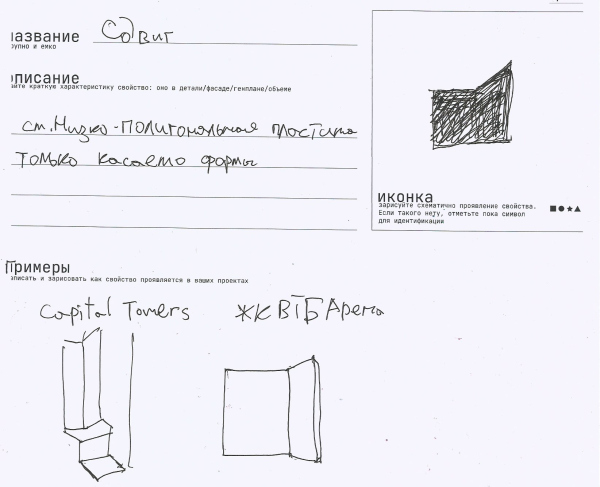 название
крупно и ёмко
Сдвиг
описание
дайте краткую характеристику свойство: оно в детали/фасаде/генплане/объеме
см. Низко-полигональная пластика
только касаемо формы
иконка
зарисуйте схематично проявление свойства.
Если такого нету, отметьте пока символ
для идентификации
■●★▲
Примеры
описать и зарисовать как свойство проявляется в ваших проектах
Capital Towers
ЖК ВТБ Арена